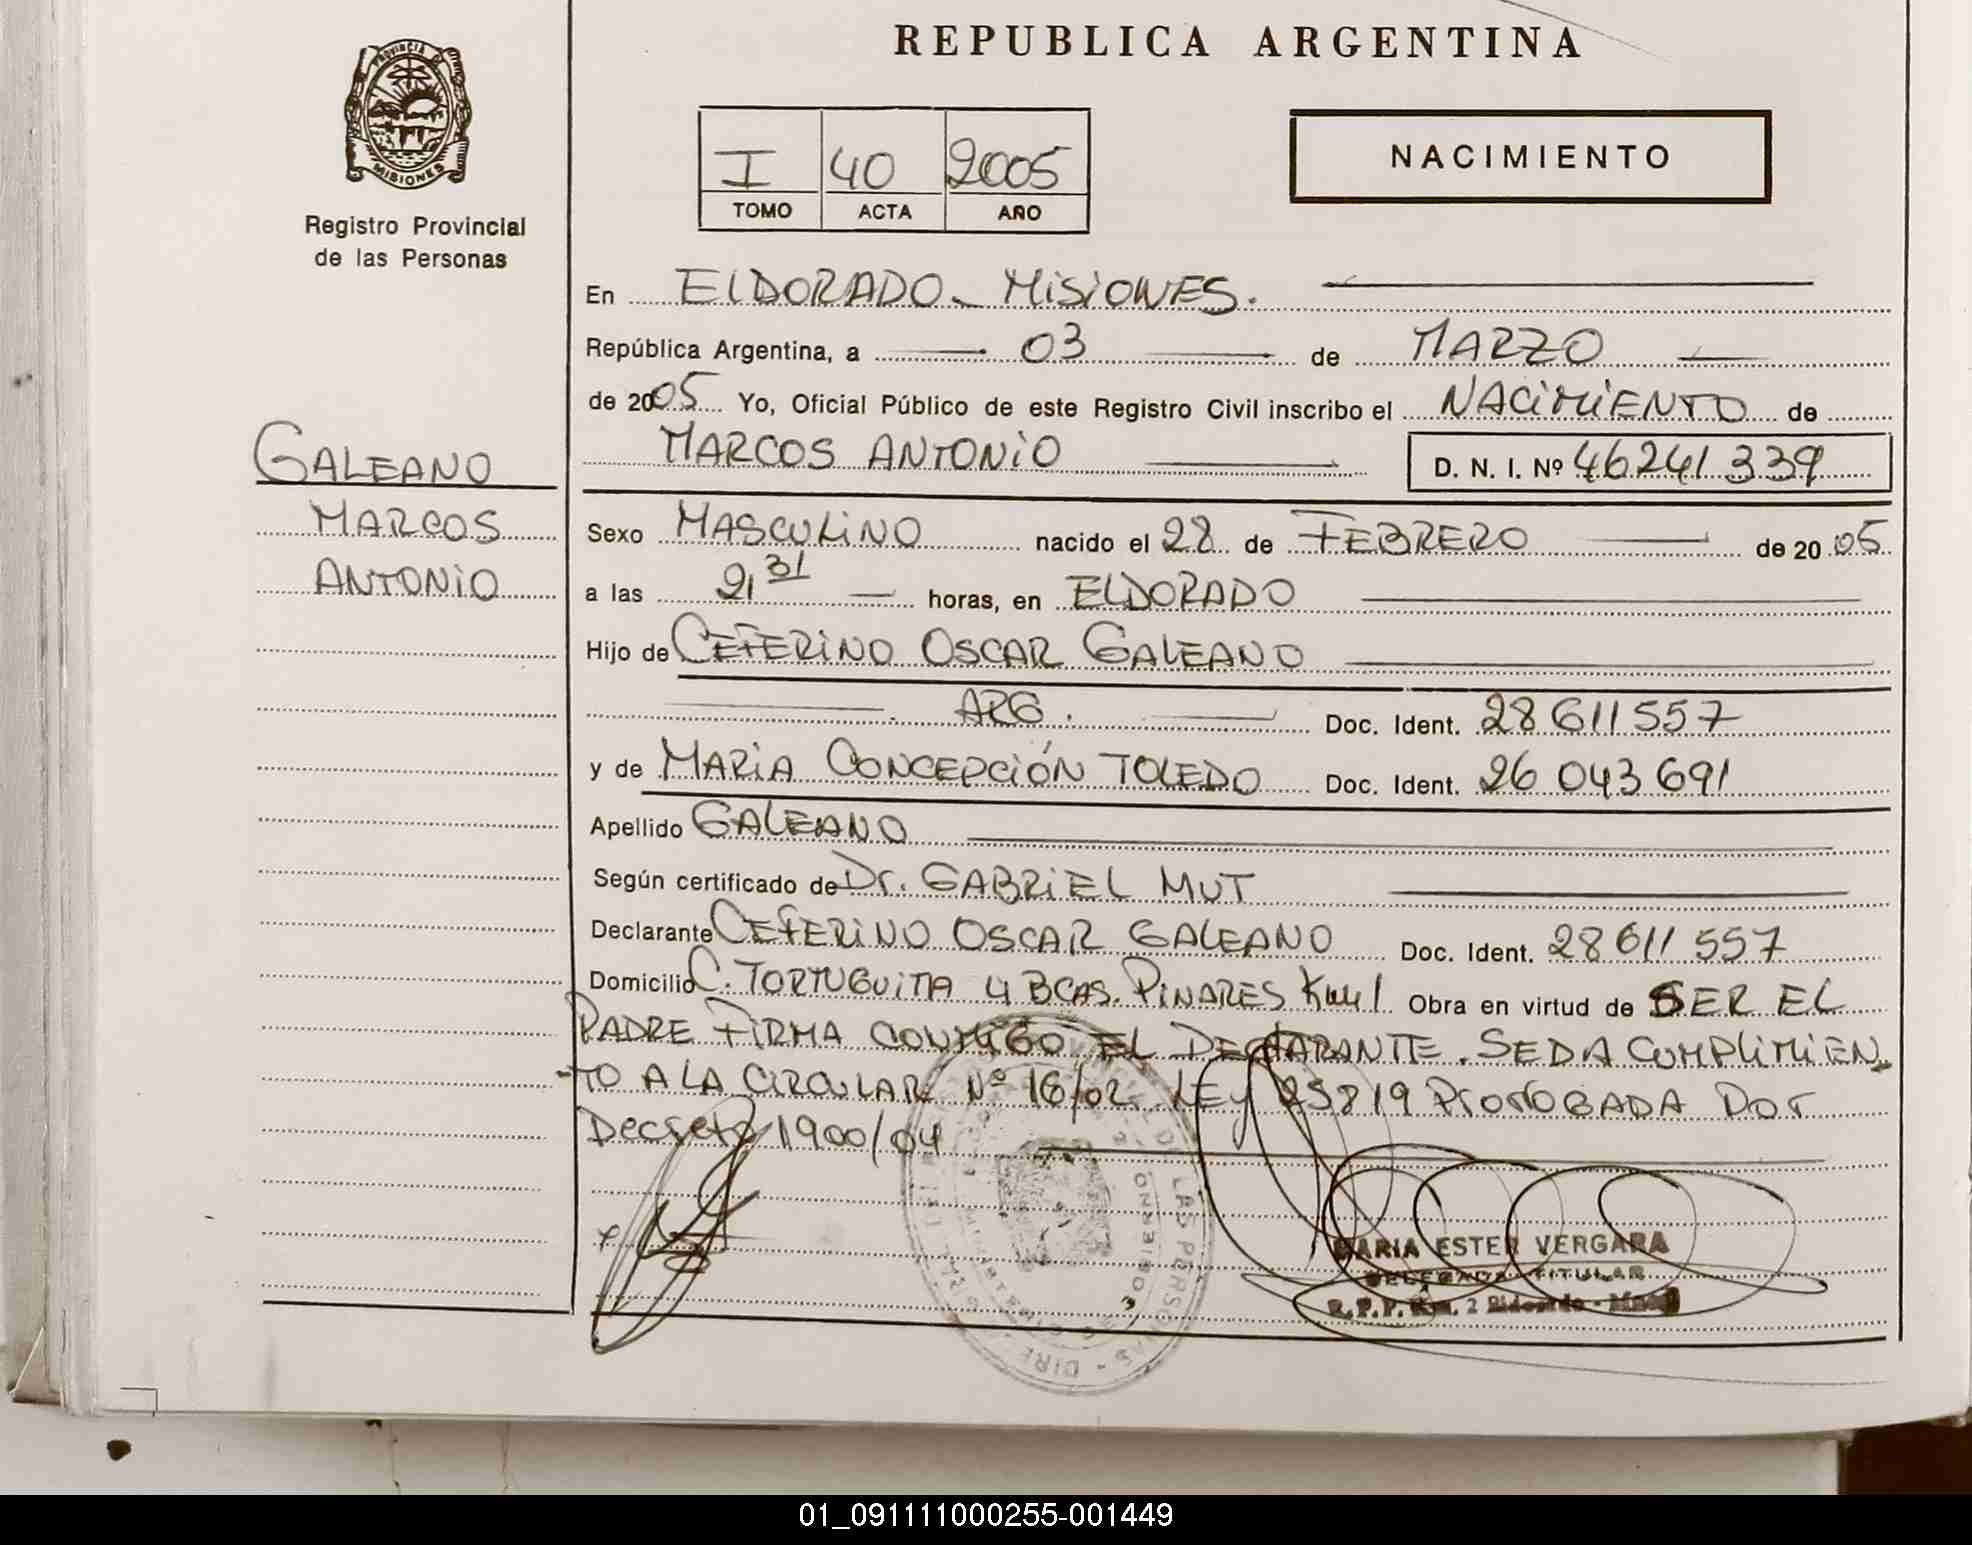 REPUBLICA ARGENTINA
PROVINCIA DE MISIONES
Registro Provincial
de las Personas
I 40 2005
TOMO ACTA AÑO
NACIMIENTO
GALEANO
MARCOS
ANTONIO
En ELDORADO - MISIONES.
República Argentina, a 03 de MARZO
de 2005 Yo, Oficial Público de este Registro Civil inscribo el NACIMIENTO de
MARCOS ANTONIO D. N. I. Nº 46241339
Sexo MASCULINO nacido el 28 de FEBRERO de 2005
a las 21 31 horas, en ELDORADO
Hijo de CEFERINO OSCAR GALEANO
ARG. Doc. Ident. 28611557
y de MARIA CONCEPCIÓN TOLEDO Doc. Ident. 26 043 691
Apellido GALEANO
Según certificado de Dr. GABRIEL MUT
Declarante CEFERINO OSCAR GALEANO Doc. Ident. 28 611 557
Domicilio C. TORTUGUITA 4 BCAS. PINARES Obra en virtud de SER EL
PADRE FIRMA CONMIGO EL DECLARANTE. SE DA CUMPLIMIEN
-TO A LA CIRCULAR Nº 16/02 LEY 25819 Prorrogada Por
Decreto 1900/04
MARIA ESTER VERGARA
DELEGADA TITULAR
R.P.P. Km. 2 Eldorado - Mnes
01_091111000255-001449